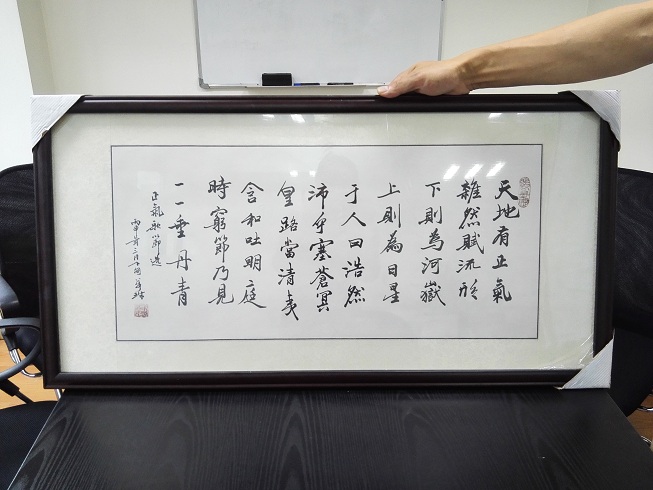 天地有正氣
雜然賦流形
下則為河嶽
上則為日星
于人曰浩然
沛乎塞蒼冥
皇路當清夷
含和吐明庭
時窮節乃見
一一垂丹青
正氣歌節選